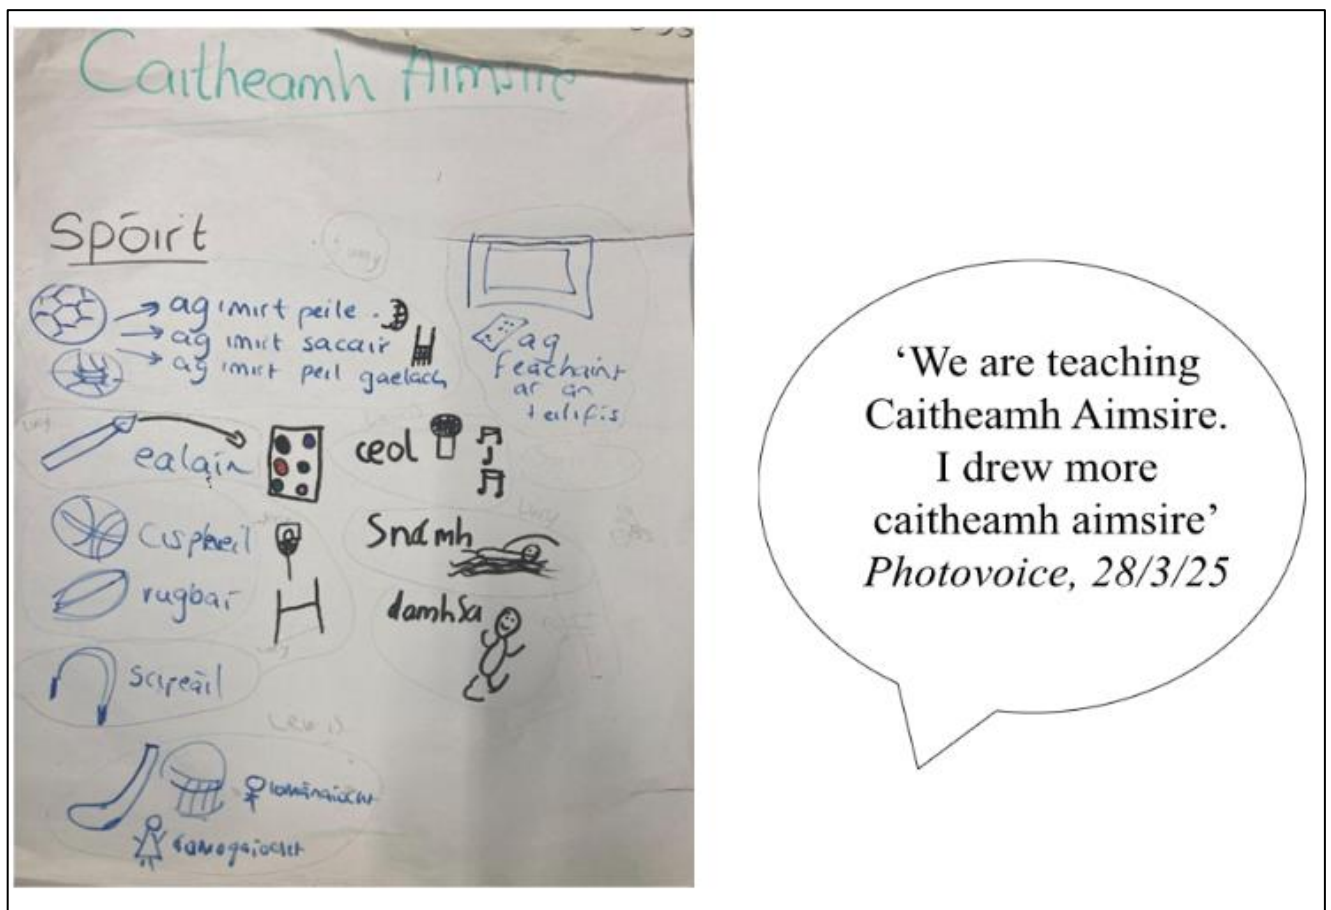 Caitheamh Aimsire
Spóirt
ag imirt peile
ag imirt sacair
ag imirt peil gaelach
ag
feachaint
ar an
teilifís
ealaín
ceol
Cispheil
Snámh
rugbaí
damhsa
scipeáil
Lewis
iománaíocht
camogaíocht
‘We are teaching
Caitheamh Aimsire.
I drew more
caitheamh aimsire’
Photovoice, 28/3/25